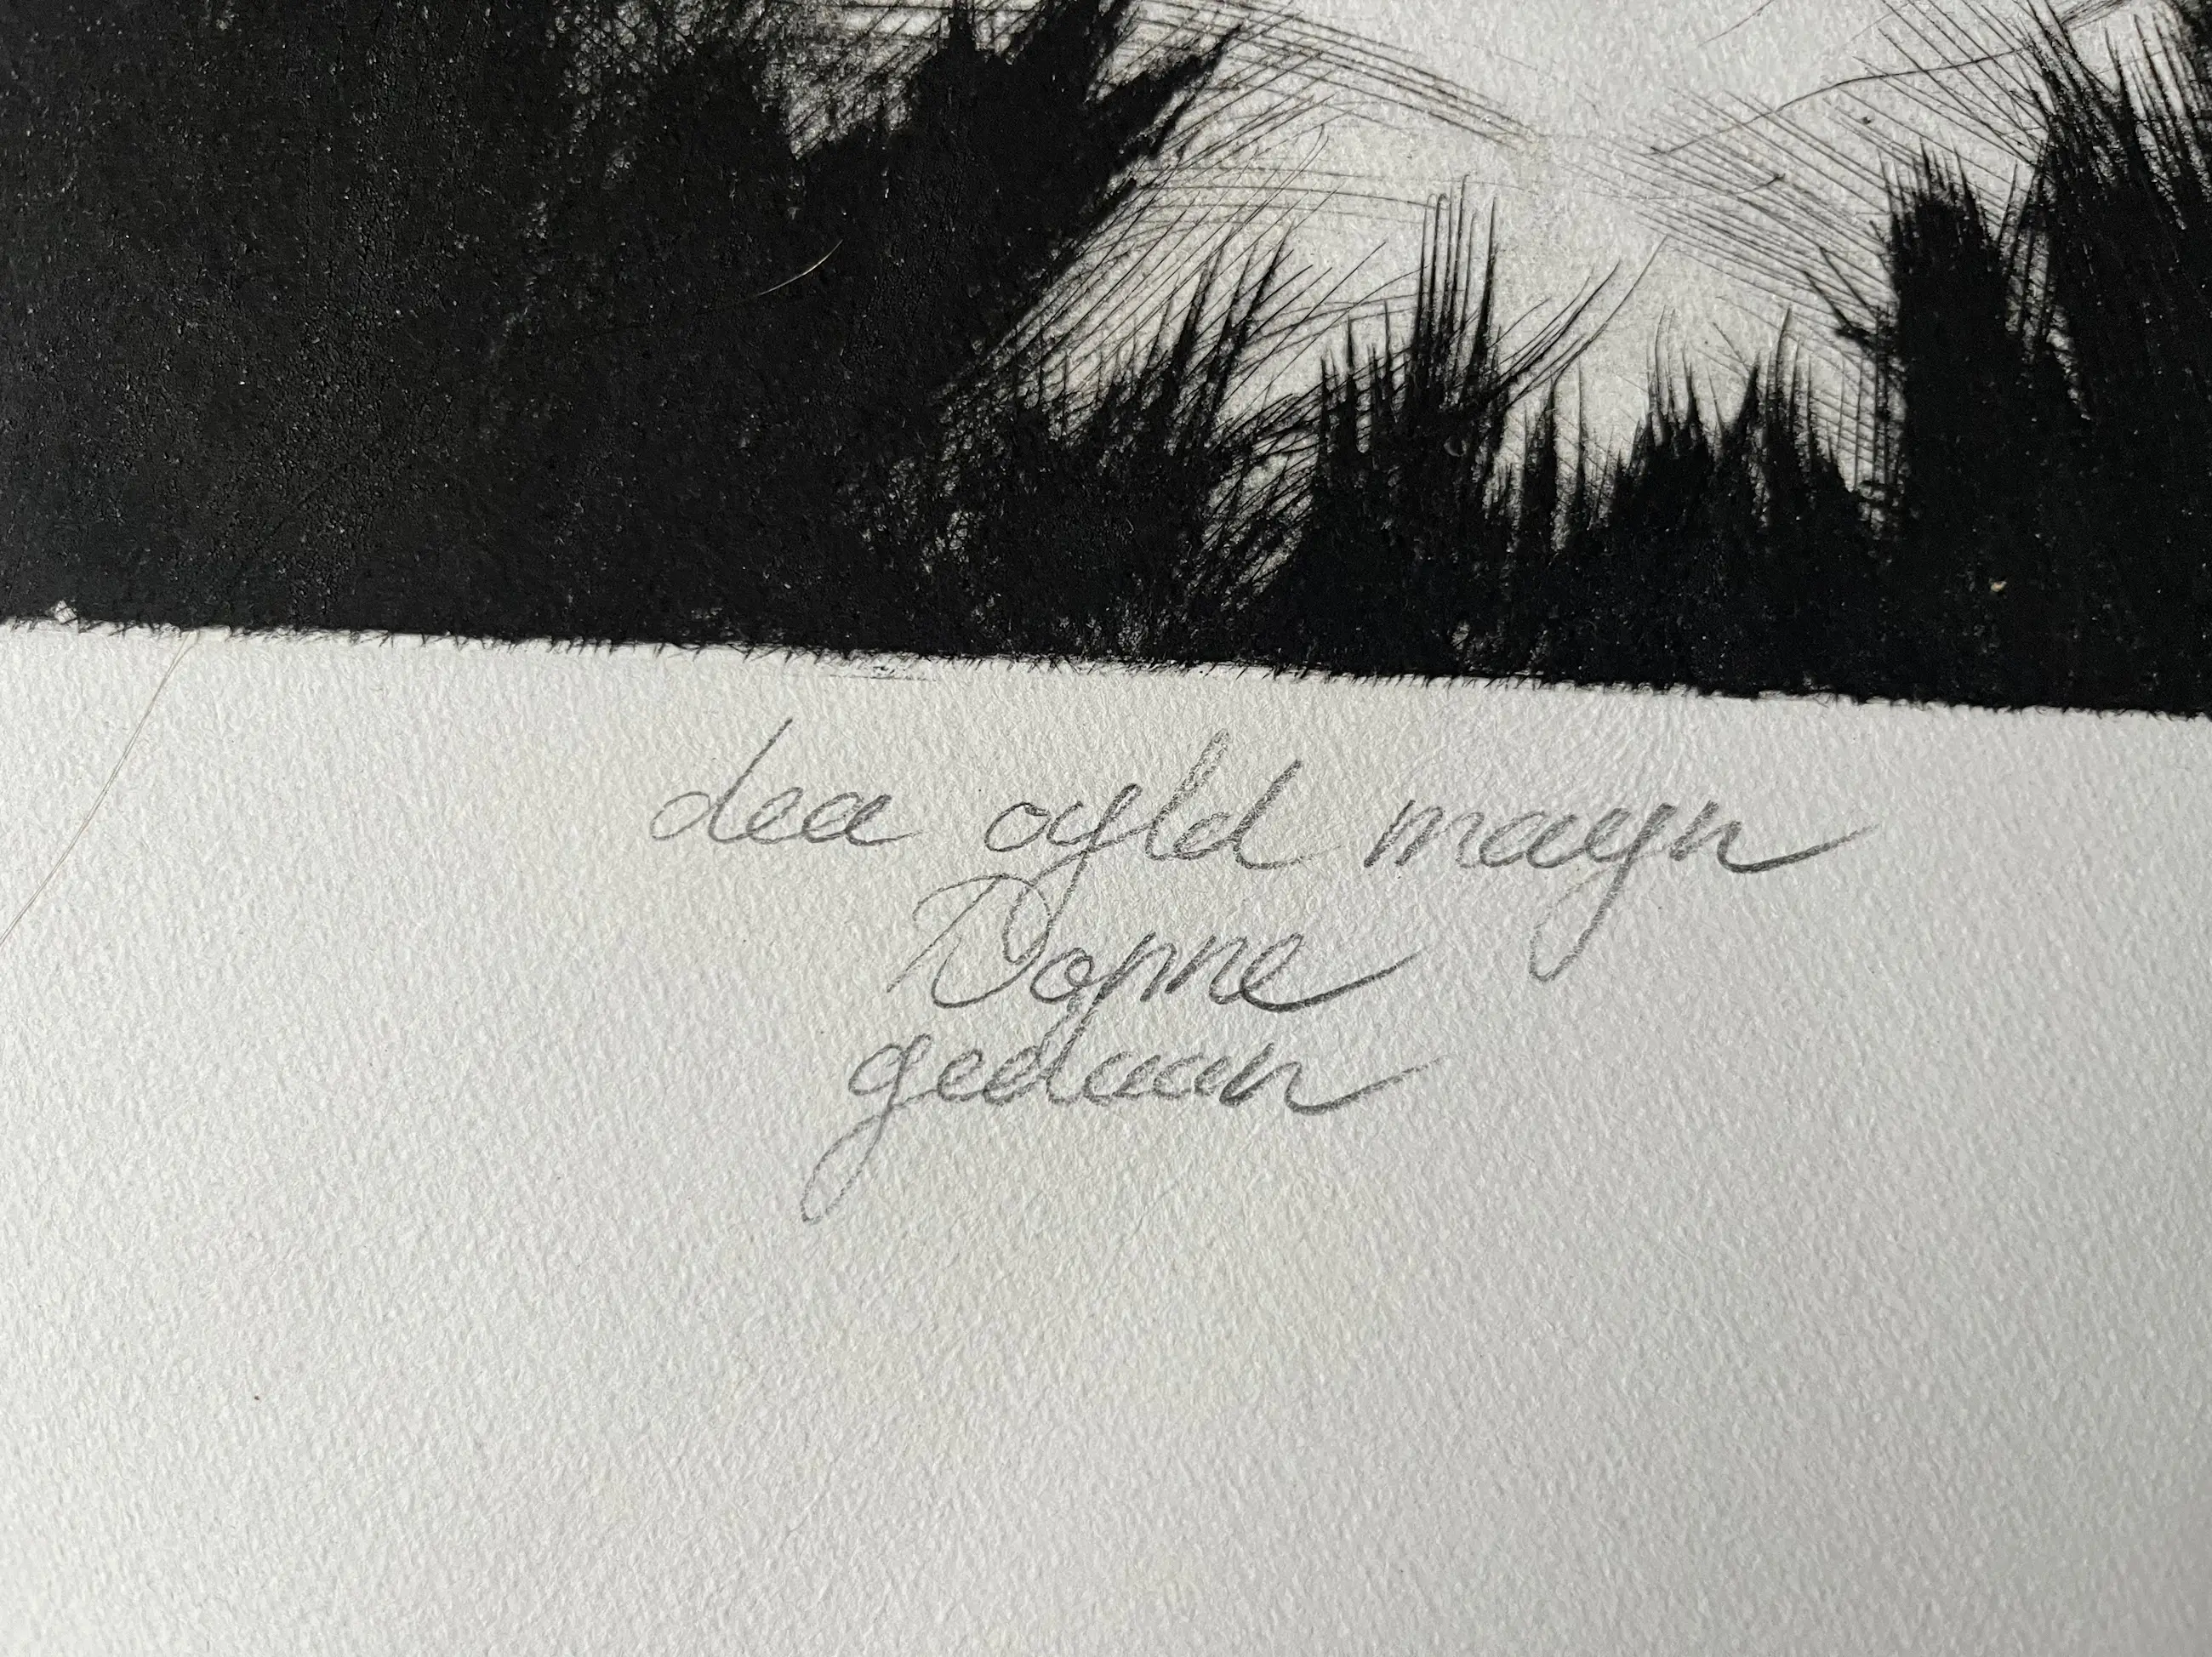 dea oyld mayn
Dopne
gedaan